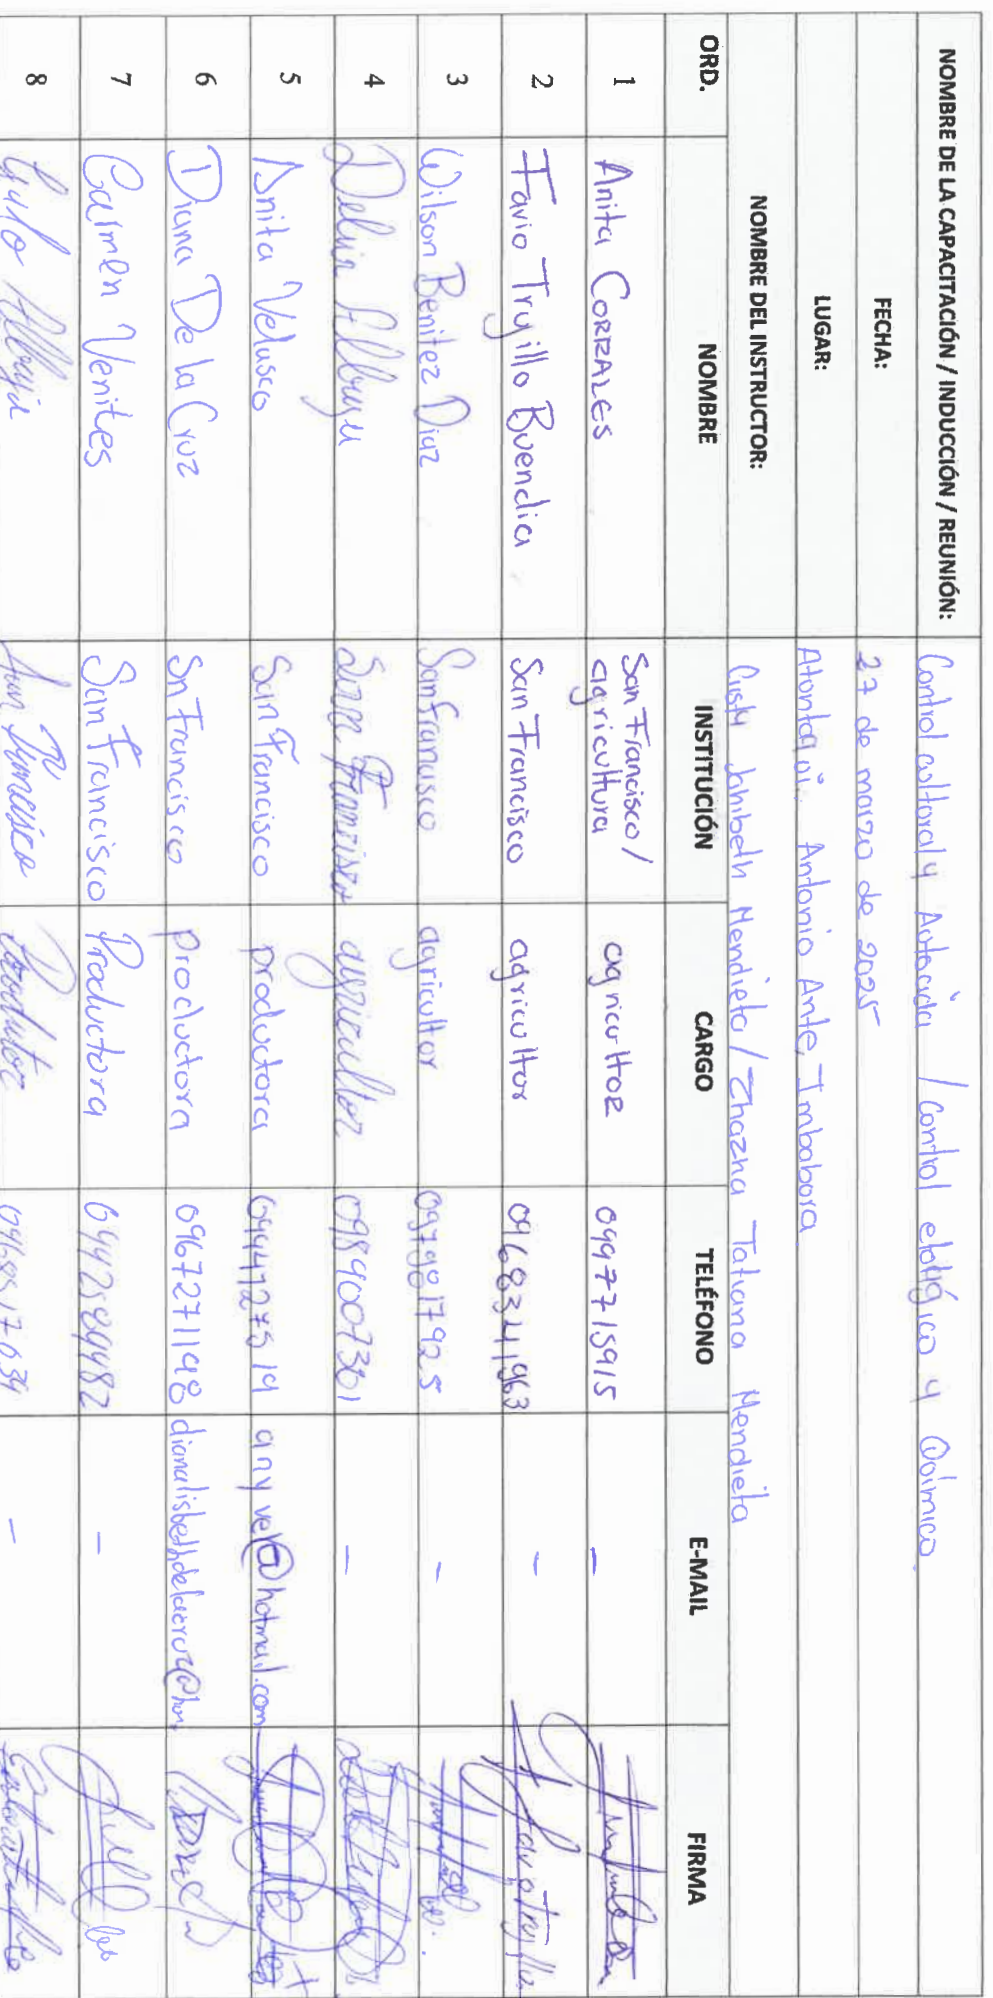 NOMBRE DE LA CAPACITACIÓN / INDUCCIÓN / REUNIÓN: Control cultural y Autocida / Control etológico y Químico.
FECHA: 27 de marzo de 2025
LUGAR: Atontaqui. Antonio Ante, Imbabura
NOMBRE DEL INSTRUCTOR: Cristy Jahibeth Mendieta / Zhazha Tatiana Mendieta
ORD. NOMBRE INSTITUCIÓN CARGO TELÉFONO E-MAIL FIRMA
1 Anita CORRALES San Francisco / agricultura agricultor 0997715915 -
2 Favio Trujillo Buendia San Francisco agricultor 0968341963 -
3 Wilson Benitez Diaz San Francisco agricultor 0979817925 -
4 San Francisco agricultor 0989007361 -
5 Anita Velasco San Francisco productora 0994127519 anyvel@hotmail.com
6 Diana De la Cruz Sn Francisco productora 0967271198 dianalisbethdelacruz@hot
7 Carmen Venites San Francisco Productora 0942589482 -
8 San Francisco Productor -